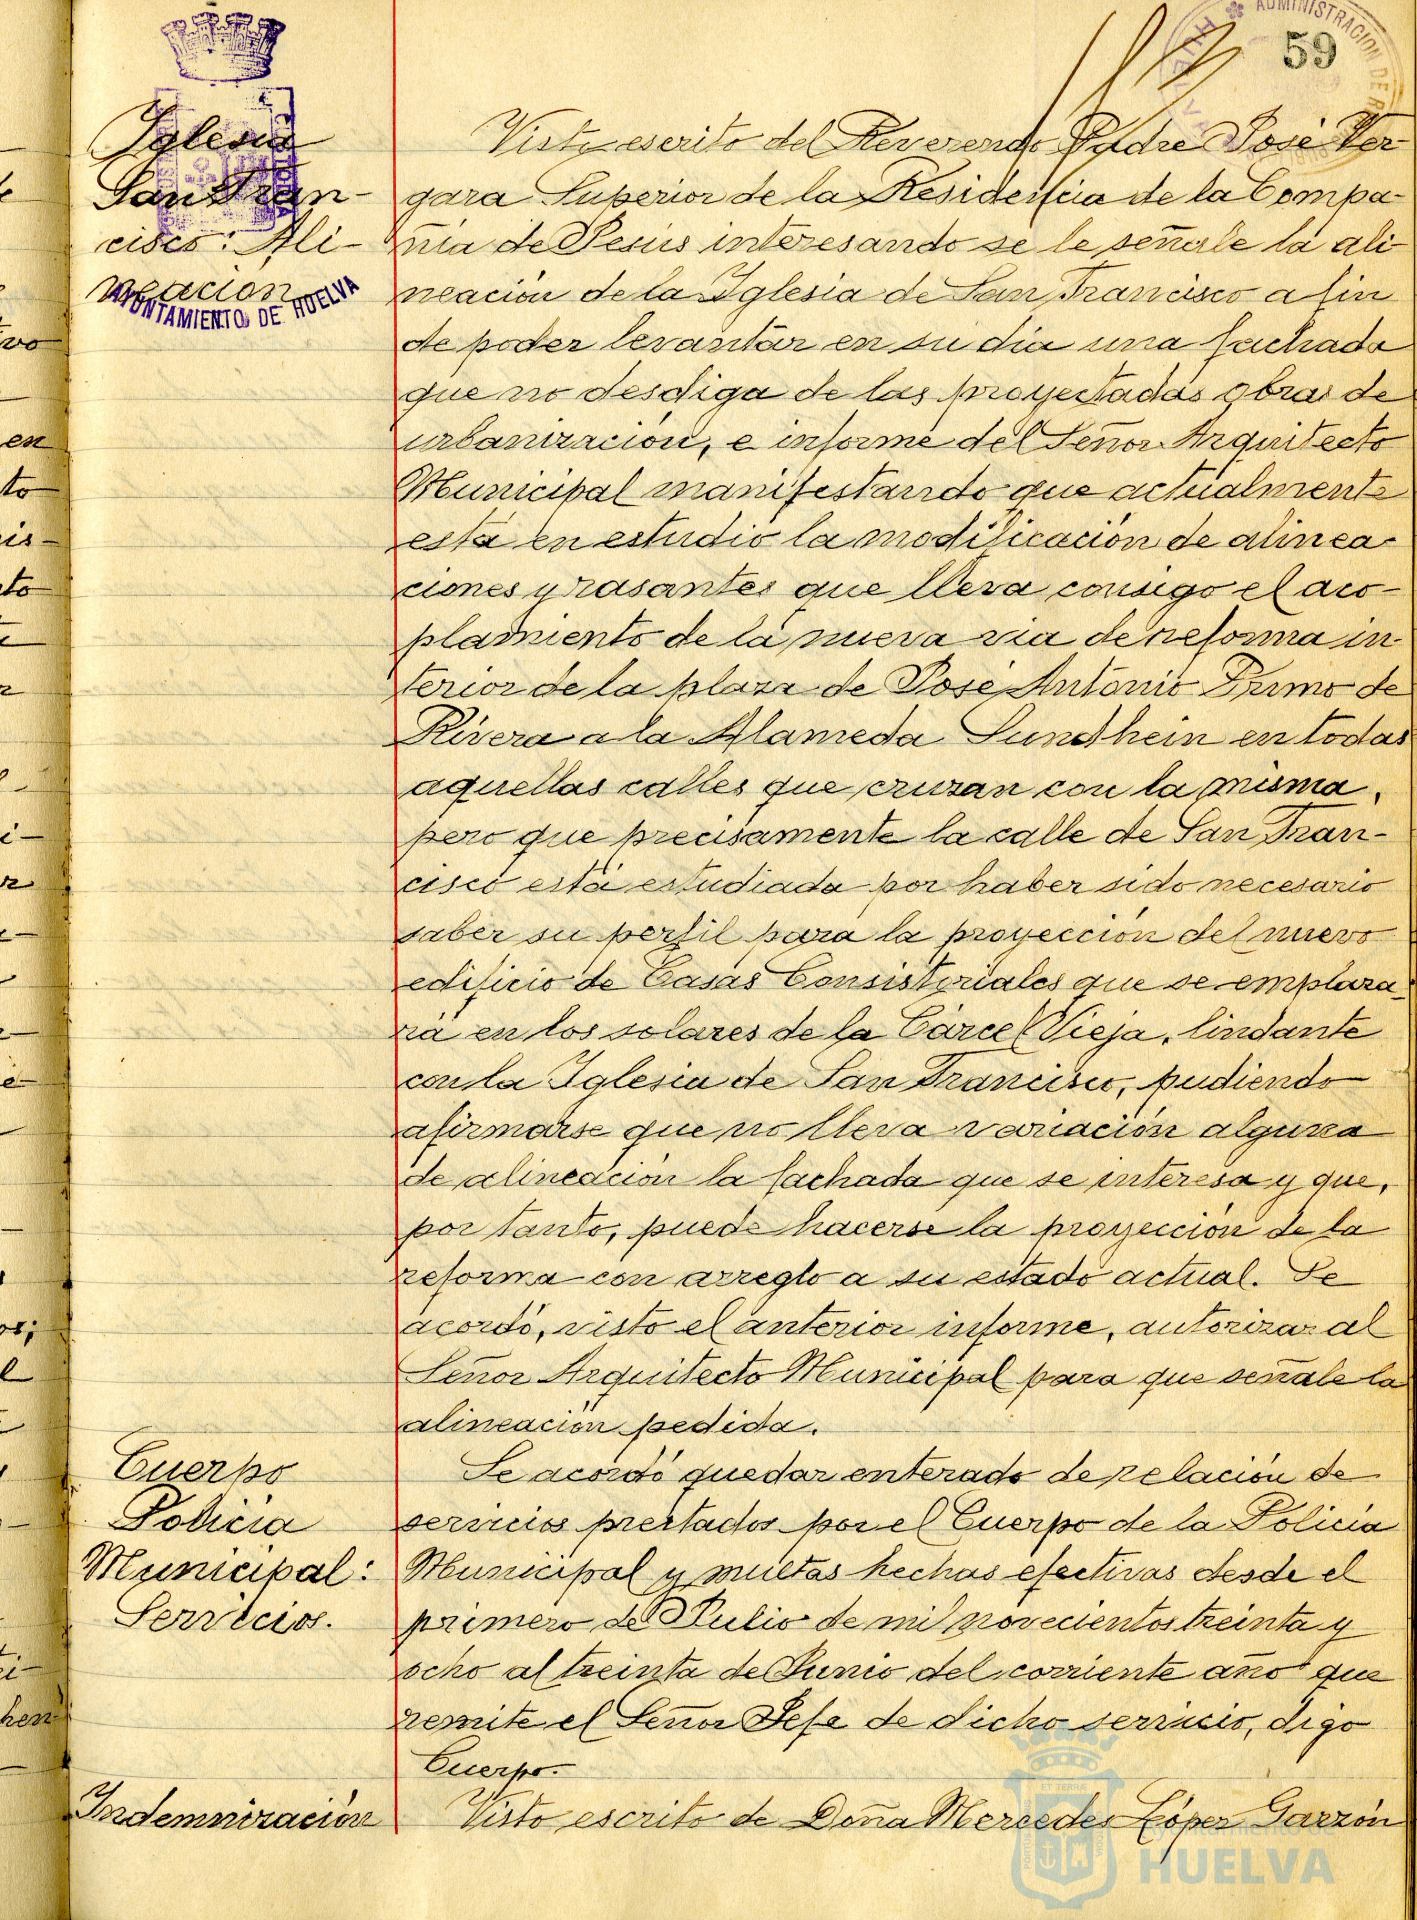 59
ADMINISTRACION DE R
HUELVA
Iglesia
San Fran-
cisco: Ali-
neación
AYUNTAMIENTO DE HUELVA
Visto escrito del Reverendo Padre José Ver-
gara Superior de la Residencia de la Compa-
ñía de Jesús interesando se le señale la ali-
neación de la Iglesia de San Francisco a fin
de poder levantar en su día una fachada
que no desdiga de las proyectadas obras de
urbanización, e informe del Señor Arquitecto
Municipal manifestando que actualmente
está en estudio la modificación de alinea-
ciones y rasantes que lleva consigo el aco-
plamiento de la nueva via de reforma in-
terior de la plaza de José Antonio Primo de
Rivera a la Alameda Sundhein en todas
aquellas calles que cruzan con la misma,
pero que precisamente la calle de San Fran-
cisco está estudiada por haber sido necesario
saber su perfil para la proyección del nuevo
edificio de Casas Consistoriales que se emplaza-
rá en los solares de la Cárcel Vieja, lindante
con la Iglesia de San Francisco, pudiendo
afirmarse que no lleva variación alguna
de alineación la fachada que se interesa y que,
por tanto, puede hacerse la proyección de la
reforma con arreglo a su estado actual. Se
acordó, visto el anterior informe, autorizar al
Señor Arquitecto Municipal para que señale la
alineación pedida.
Cuerpo
Policia
Municipal:
Servicios.
Se acordó quedar enterado de relación de
servicios prestados por el Cuerpo de la Policía
Municipal y multas hechas efectivas desde el
primero de Julio de mil novecientos treinta y
ocho al treinta de Junio del corriente año que
remite el Señor Jefe de dicho servicio, digo
Cuerpo.
Indemnización
Visto escrito de Doña Mercedes López Garzón
Ayuntamiento de
HUELVA